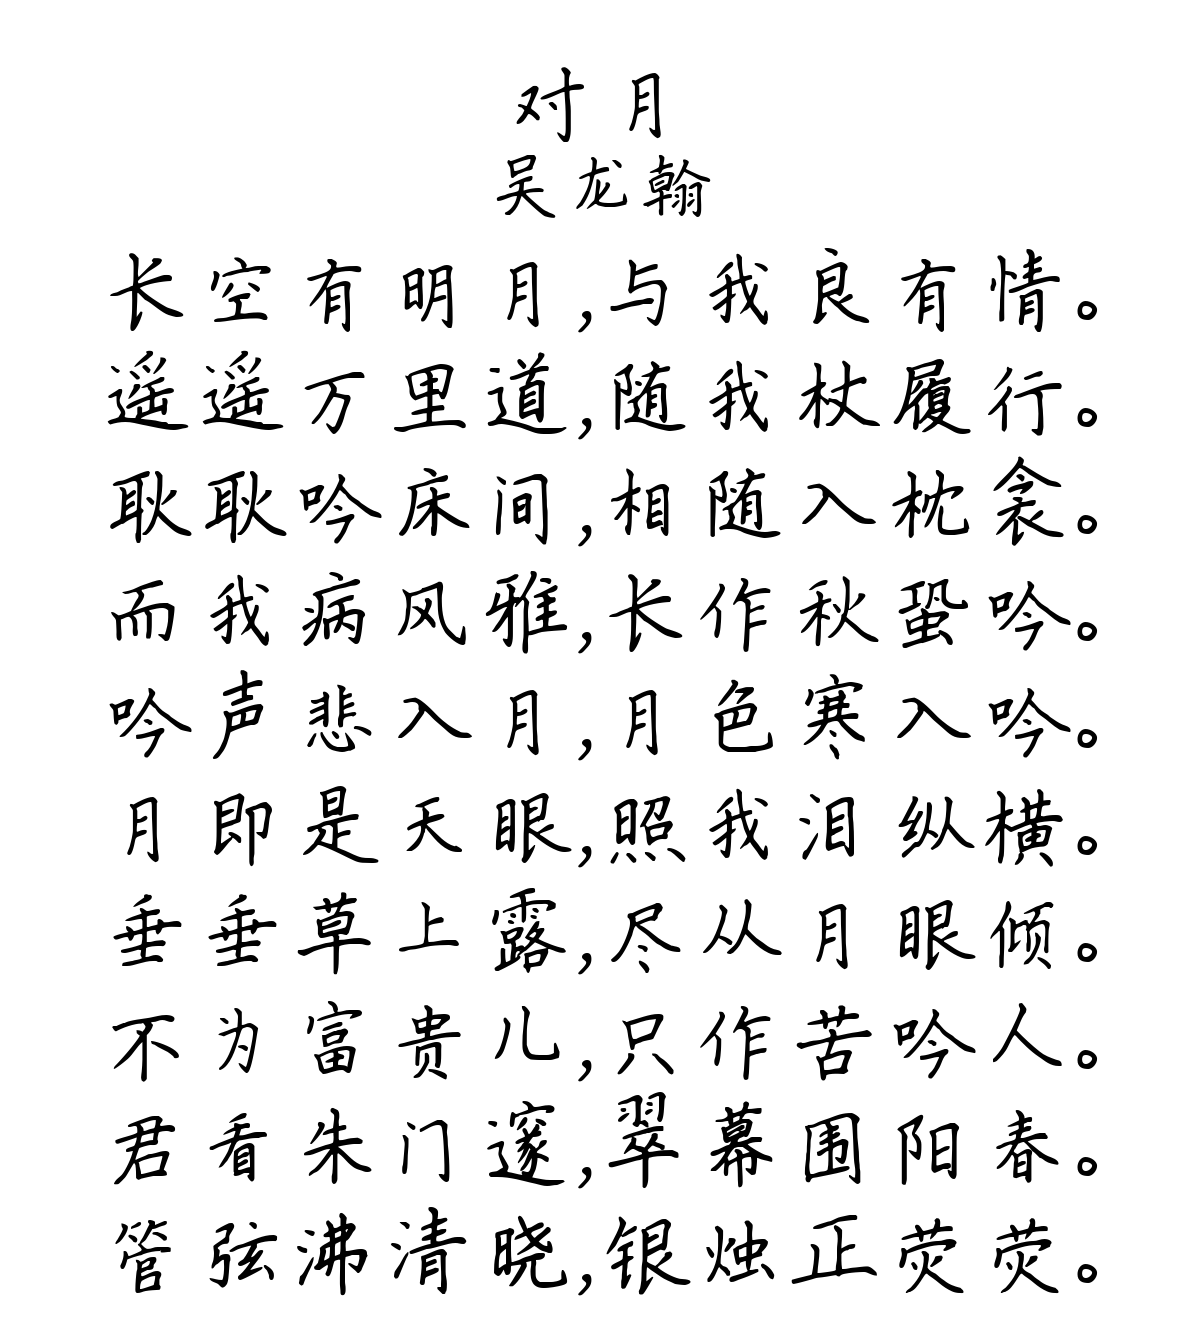 对月
吴龙翰
长空有明月,与我良有情。
遥遥万里道,随我杖履行。
耿耿吟床间,相随入枕衾。
而我病风雅,长作秋蛩吟。
吟声悲入月,月色寒入吟。
月即是天眼,照我泪纵横。
垂垂草上露,尽从月眼倾。
不为富贵儿,只作苦吟人。
君看朱门邃,翠幕围阳春。
管弦沸清晓,银烛正荧荧。